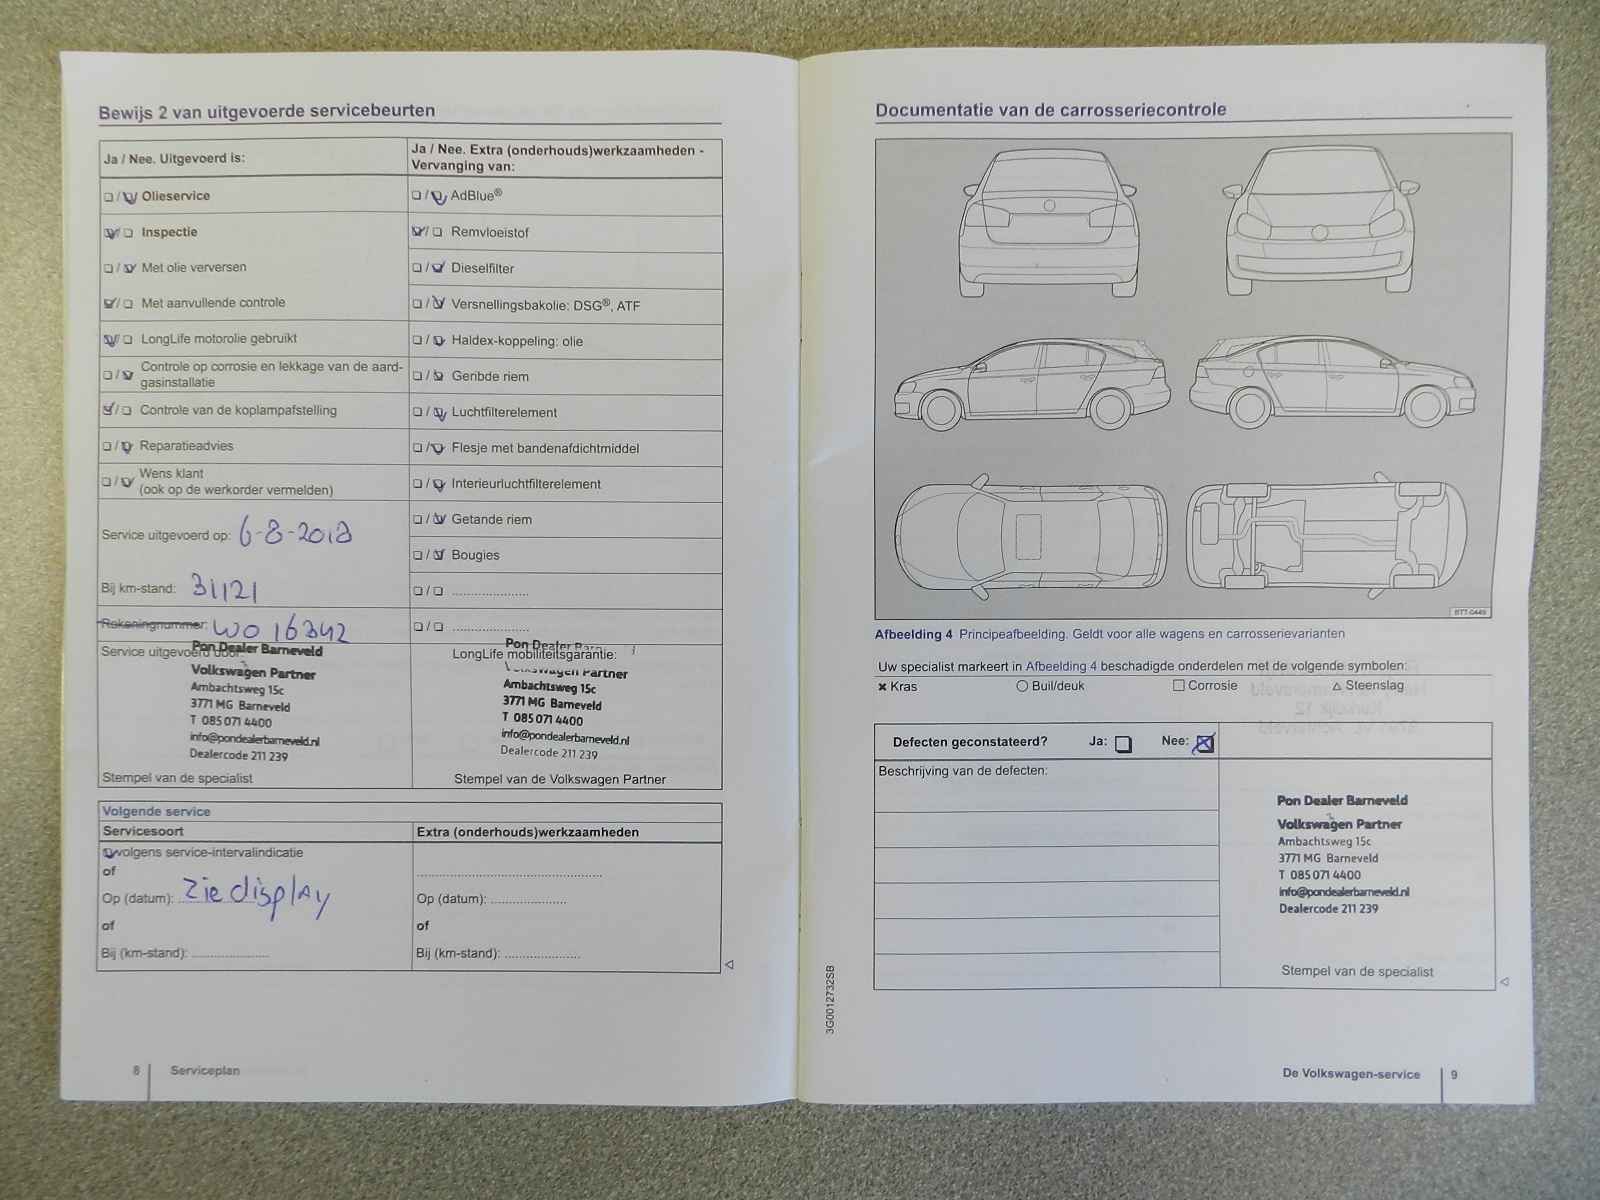 Bewijs 2 van uitgevoerde servicebeurten
Ja / Nee. Uitgevoerd is:
Olieservice
Inspectie
Met olie verversen
Met aanvullende controle
LongLife motorolie gebruikt
Controle op corrosie en lekkage van de aard-
gasinstallatie
Controle van de koplampafstelling
Reparatieadvies
Wens klant
(ook op de werkorder vermelden)
Service uitgevoerd op: 6-8-2018
Bij km-stand: 31121
Rekeningnummer: WO 16342
Service uitgevoerd door:
Pon Dealer Barneveld
Volkswagen Partner
Ambachtsweg 15c
3771 MG Barneveld
T 085 071 4400
info@pondealerbarneveld.nl
Dealercode 211 239
Stempel van de specialist
Ja / Nee. Extra (onderhouds)werkzaamheden -
Vervanging van:
AdBlue®
Remvloeistof
Dieselfilter
Versnellingsbakolie: DSG®, ATF
Haldex-koppeling: olie
Geribde riem
Luchtfilterelement
Flesje met bandenafdichtmiddel
Interieurluchtfilterelement
Getande riem
Bougies
Pon Dealer
LongLife mobiliteitsgarantie:
Volkswagen Partner
Ambachtsweg 15c
3771 MG Barneveld
T 085 071 4400
info@pondealerbarneveld.nl
Dealercode 211 239
Stempel van de Volkswagen Partner
Volgende service
Servicesoort
volgens service-intervalindicatie
of
Op (datum): Zie display
of
Bij (km-stand):
Extra (onderhouds)werkzaamheden
Op (datum):
of
Bij (km-stand):
8 Serviceplan
Documentatie van de carrosseriecontrole
BTT-0449
Afbeelding 4 Principeafbeelding. Geldt voor alle wagens en carrosserievarianten
Uw specialist markeert in Afbeelding 4 beschadigde onderdelen met de volgende symbolen:
Kras Buil/deuk Corrosie Steenslag
Defecten geconstateerd? Ja: Nee:
Beschrijving van de defecten:
Pon Dealer Barneveld
Volkswagen Partner
Ambachtsweg 15c
3771 MG Barneveld
T 085 071 4400
info@pondealerbarneveld.nl
Dealercode 211 239
Stempel van de specialist
3G0012732SB
De Volkswagen-service 9